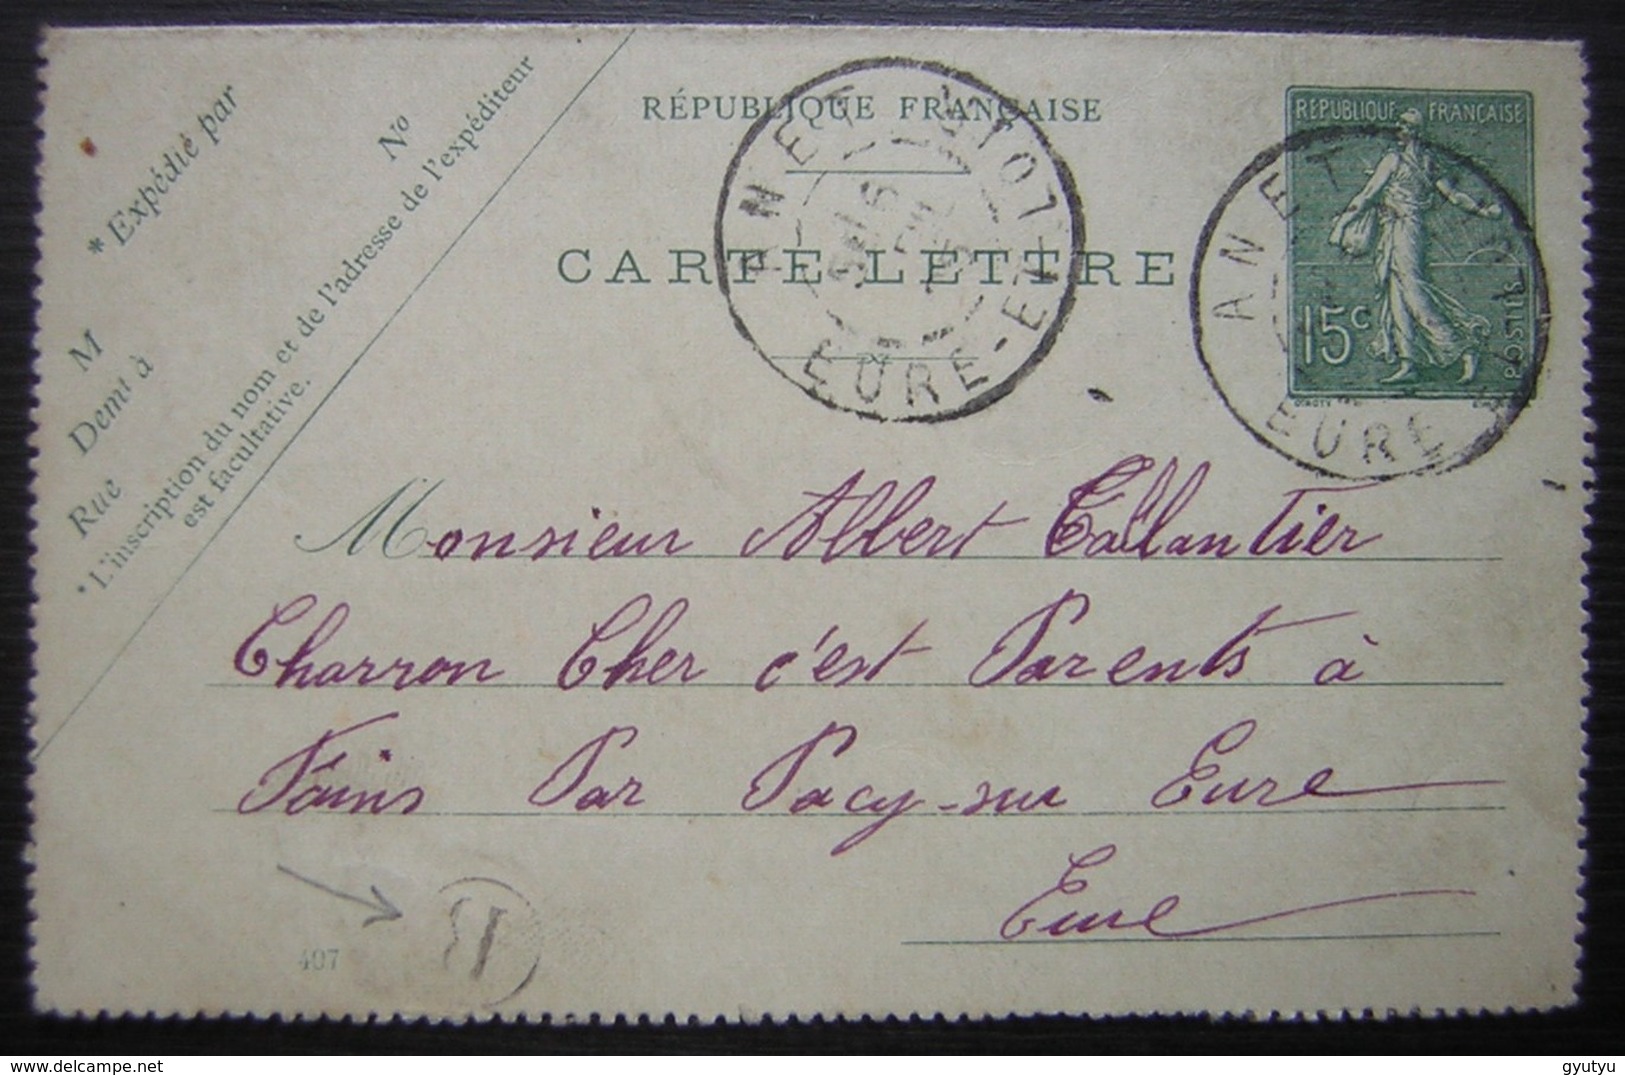 RÉPUBLIQUE FRANÇAISE
CARTE-LETTRE
* Expédié par
M
Demt à
Rue
No
* L'inscription du nom et de l'adresse de l'expéditeur
est facultative.
ANET
EURE-ET-LOIR
RÉPUBLIQUE FRANÇAISE
15c
POSTES
ANET
EURE
Monsieur Albert Tallantier
Charron Cher c'est Parents à
Fains Par Pacy-sur Eure
Eure
407
B
delcampe.net
gyutyu